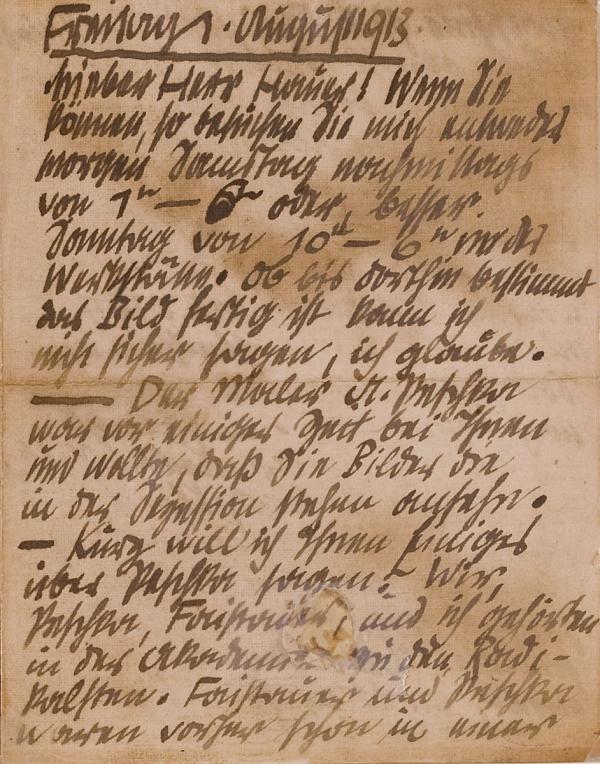 Freitag 1. August 1913.
Lieber Herr Hauer! Wenn Sie
können, so besuchen Sie mich entweder
morgen Samstag nachmittags
von 1h — 6h oder, besser
Sonntag von 10h — 6h in der
Werkstätte. Ob bis dorthin bestimmt
das Bild fertig ist kann ich
nicht sicher sagen, ich glaube.
— Der Maler A. Peschka
war vor einiger Zeit bei Ihnen
und wollte, daß Sie Bilder die
in der Sezession stehen ansehn.
— Kurz will ich Ihnen einiges
über Peschka sagen: Wir,
Peschka, Faistauer, und ich gehörten
in der Akademie zu den Radi-
kalsten. Faistauer und Peschka
waren vorher schon in einer